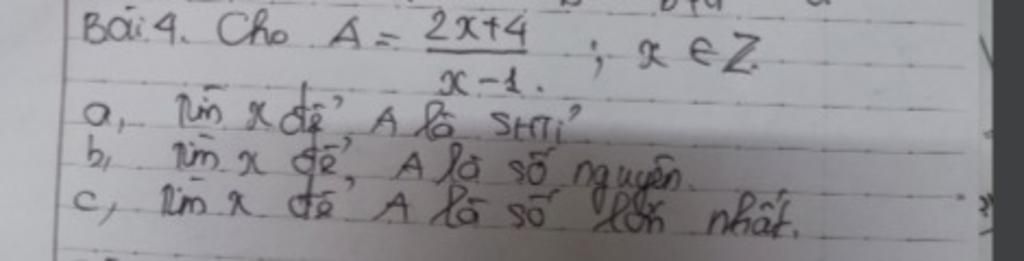 Bài 4. Cho A = \frac{2x+4}{x-1} ; x ∈ Z.
a, Tìm x để A là SHTỉ
b, Tìm x để A là số nguyên.
c, Tìm x để A là số lớn nhất.